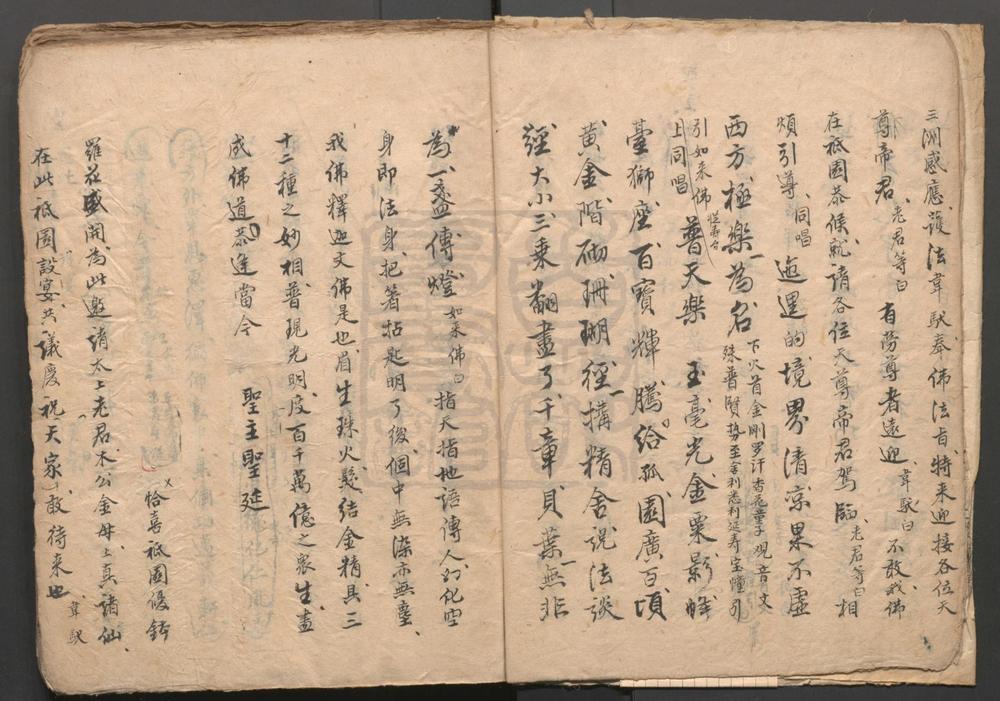 三洲感應護法韋馱奉佛法旨特来迎接各位天
尊帝君 老君等白 有勞尊者遠迎 韋馱白 不敢我佛
在祇園恭候就請各位天尊帝君駕臨 老君等白 相
煩引導 同唱 迤邐的境界清凉果不虛
西方極樂為名 下火首金剛罗汗香花童子观音文
殊普賢势至舍利悉利延寿宝幢引
引如来佛 普天樂 玉毫光金粟影
上同唱
臺獅座百寶輝騰給孤園廣百頃
黄金階砌珊瑚徑搆精舍説法談
經大小三乘翻盡了千章貝葉無非
為一盏傳燈 如来佛白 指天指地語傳人幻化空
身即法身把著牯匙明了後個中無染亦無塵
我佛釋迦文佛是也眉生珠火髮结金精具三
十二種之妙相普現光明度百千萬億之衆生盡
成佛道恭逢當今
聖主聖延
恰喜祇園優鉢
羅花盛開為此邀請太上老君木公金母上真諸仙
在此祇園設宴共議慶祝天家敢待来也 韋馱